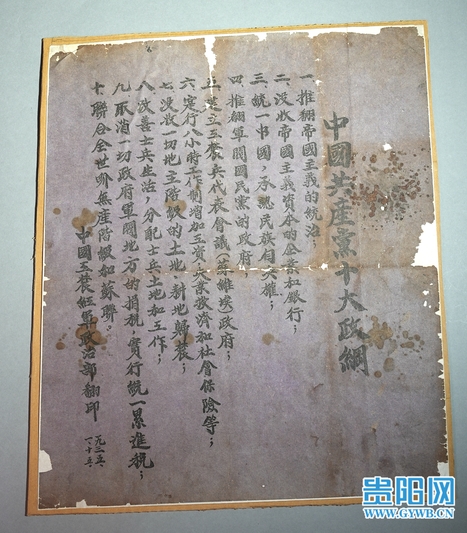 中國共產黨十大政綱
一推翻帝國主義的統治；
二、沒收帝國主義資本的企業和銀行；
三、統一中國，承認民族自決權；
四、推翻軍閥國民黨的政府；
五、建立工農兵代表會議(蘇維埃)政府；
六、實行八小時工作制增加工資失業救濟和社會保險等；
七、沒收一切地主階級的土地，耕地歸農；
八、改善士兵生活，分配士兵土地和工作；
九、取消一切政府軍閥地方的捐稅，實行統一累進稅；
十、聯合全世界無產階級和蘇聯。
中國工農紅軍政治部翻印
一九三五、
一、十五、
贵阳网
WWW.GYWB.CN